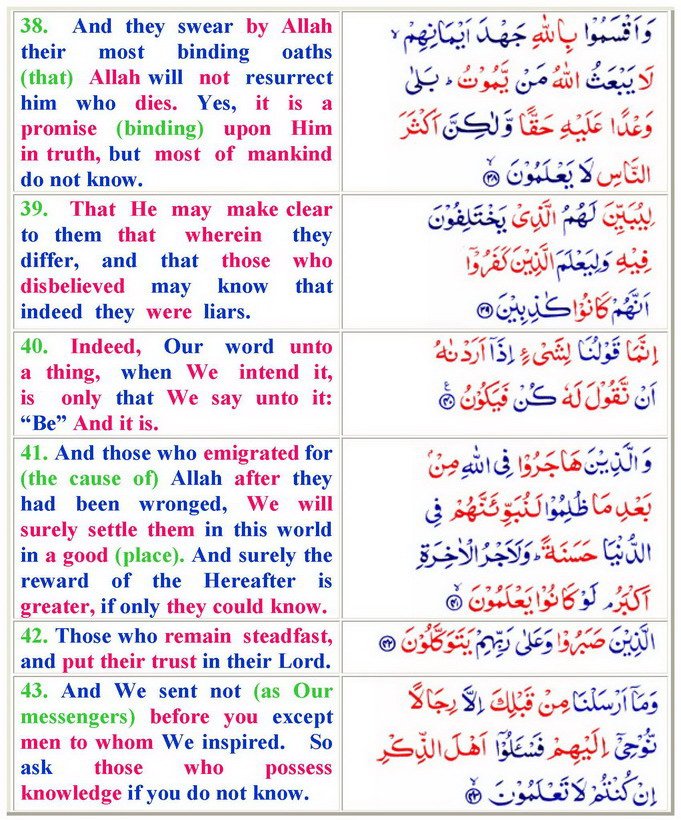 38. And they swear by Allah
their most binding oaths
(that) Allah will not resurrect
him who dies. Yes, it is a
promise (binding) upon Him
in truth, but most of mankind
do not know.
وَاَقْسَمُوْا بِاللّٰهِ جَهْدَ اَيْمَانِهِمْ ۙ
لَا يَبْعَثُ اللّٰهُ مَنْ يَّمُوْتُ ؕ بَلٰى
وَعْدًا عَلَيْهِ حَقًّا وَّلٰكِنَّ اَكْثَرَ
النَّاسِ لَا يَعْلَمُوْنَ ۙ﴿۳۸﴾
39. That He may make clear
to them that wherein they
differ, and that those who
disbelieved may know that
indeed they were liars.
لِيُبَيِّنَ لَهُمُ الَّذِىْ يَخْتَلِفُوْنَ
فِيْهِ وَلِيَعْلَمَ الَّذِيْنَ كَفَرُوْۤا
اَنَّهُمْ كَانُوْا كٰذِبِيْنَ ﴿۳۹﴾
40. Indeed, Our word unto
a thing, when We intend it,
is only that We say unto it:
“Be” And it is.
اِنَّمَا قَوْلُنَا لِشَىْءٍ اِذَاۤ اَرَدْنٰهُ
اَنْ نَّقُوْلَ لَهٗ كُنْ فَيَكُوْنُ ﴿۴۰﴾ ع
41. And those who emigrated for
(the cause of) Allah after they
had been wronged, We will
surely settle them in this world
in a good (place). And surely the
reward of the Hereafter is
greater, if only they could know.
وَالَّذِيْنَ هَاجَرُوْا فِى اللّٰهِ مِنْۢ
بَعْدِ مَا ظُلِمُوْا لَـنُبَوِّئَنَّهُمْ فِى
الدُّنْيَا حَسَنَةً ؕ وَلَاَجْرُ الْاٰخِرَةِ
اَكْبَرُ ۘ لَوْ كَانُوْا يَعْلَمُوْنَ ۙ﴿۴۱﴾
42. Those who remain steadfast,
and put their trust in their Lord.
الَّذِيْنَ صَبَرُوْا وَعَلٰى رَبِّهِمْ يَتَوَكَّلُوْنَ ﴿۴۲﴾
43. And We sent not (as Our
messengers) before you except
men to whom We inspired. So
ask those who possess
knowledge if you do not know.
وَمَاۤ اَرْسَلْنَا مِنْ قَبْلِكَ اِلَّا رِجَالًا
نُّوْحِىْۤ اِلَيْهِمْ فَسْـَٔلُوْۤا اَهْلَ الذِّكْرِ
اِنْ كُنْتُمْ لَا تَعْلَمُوْنَ ۙ﴿۴۳﴾